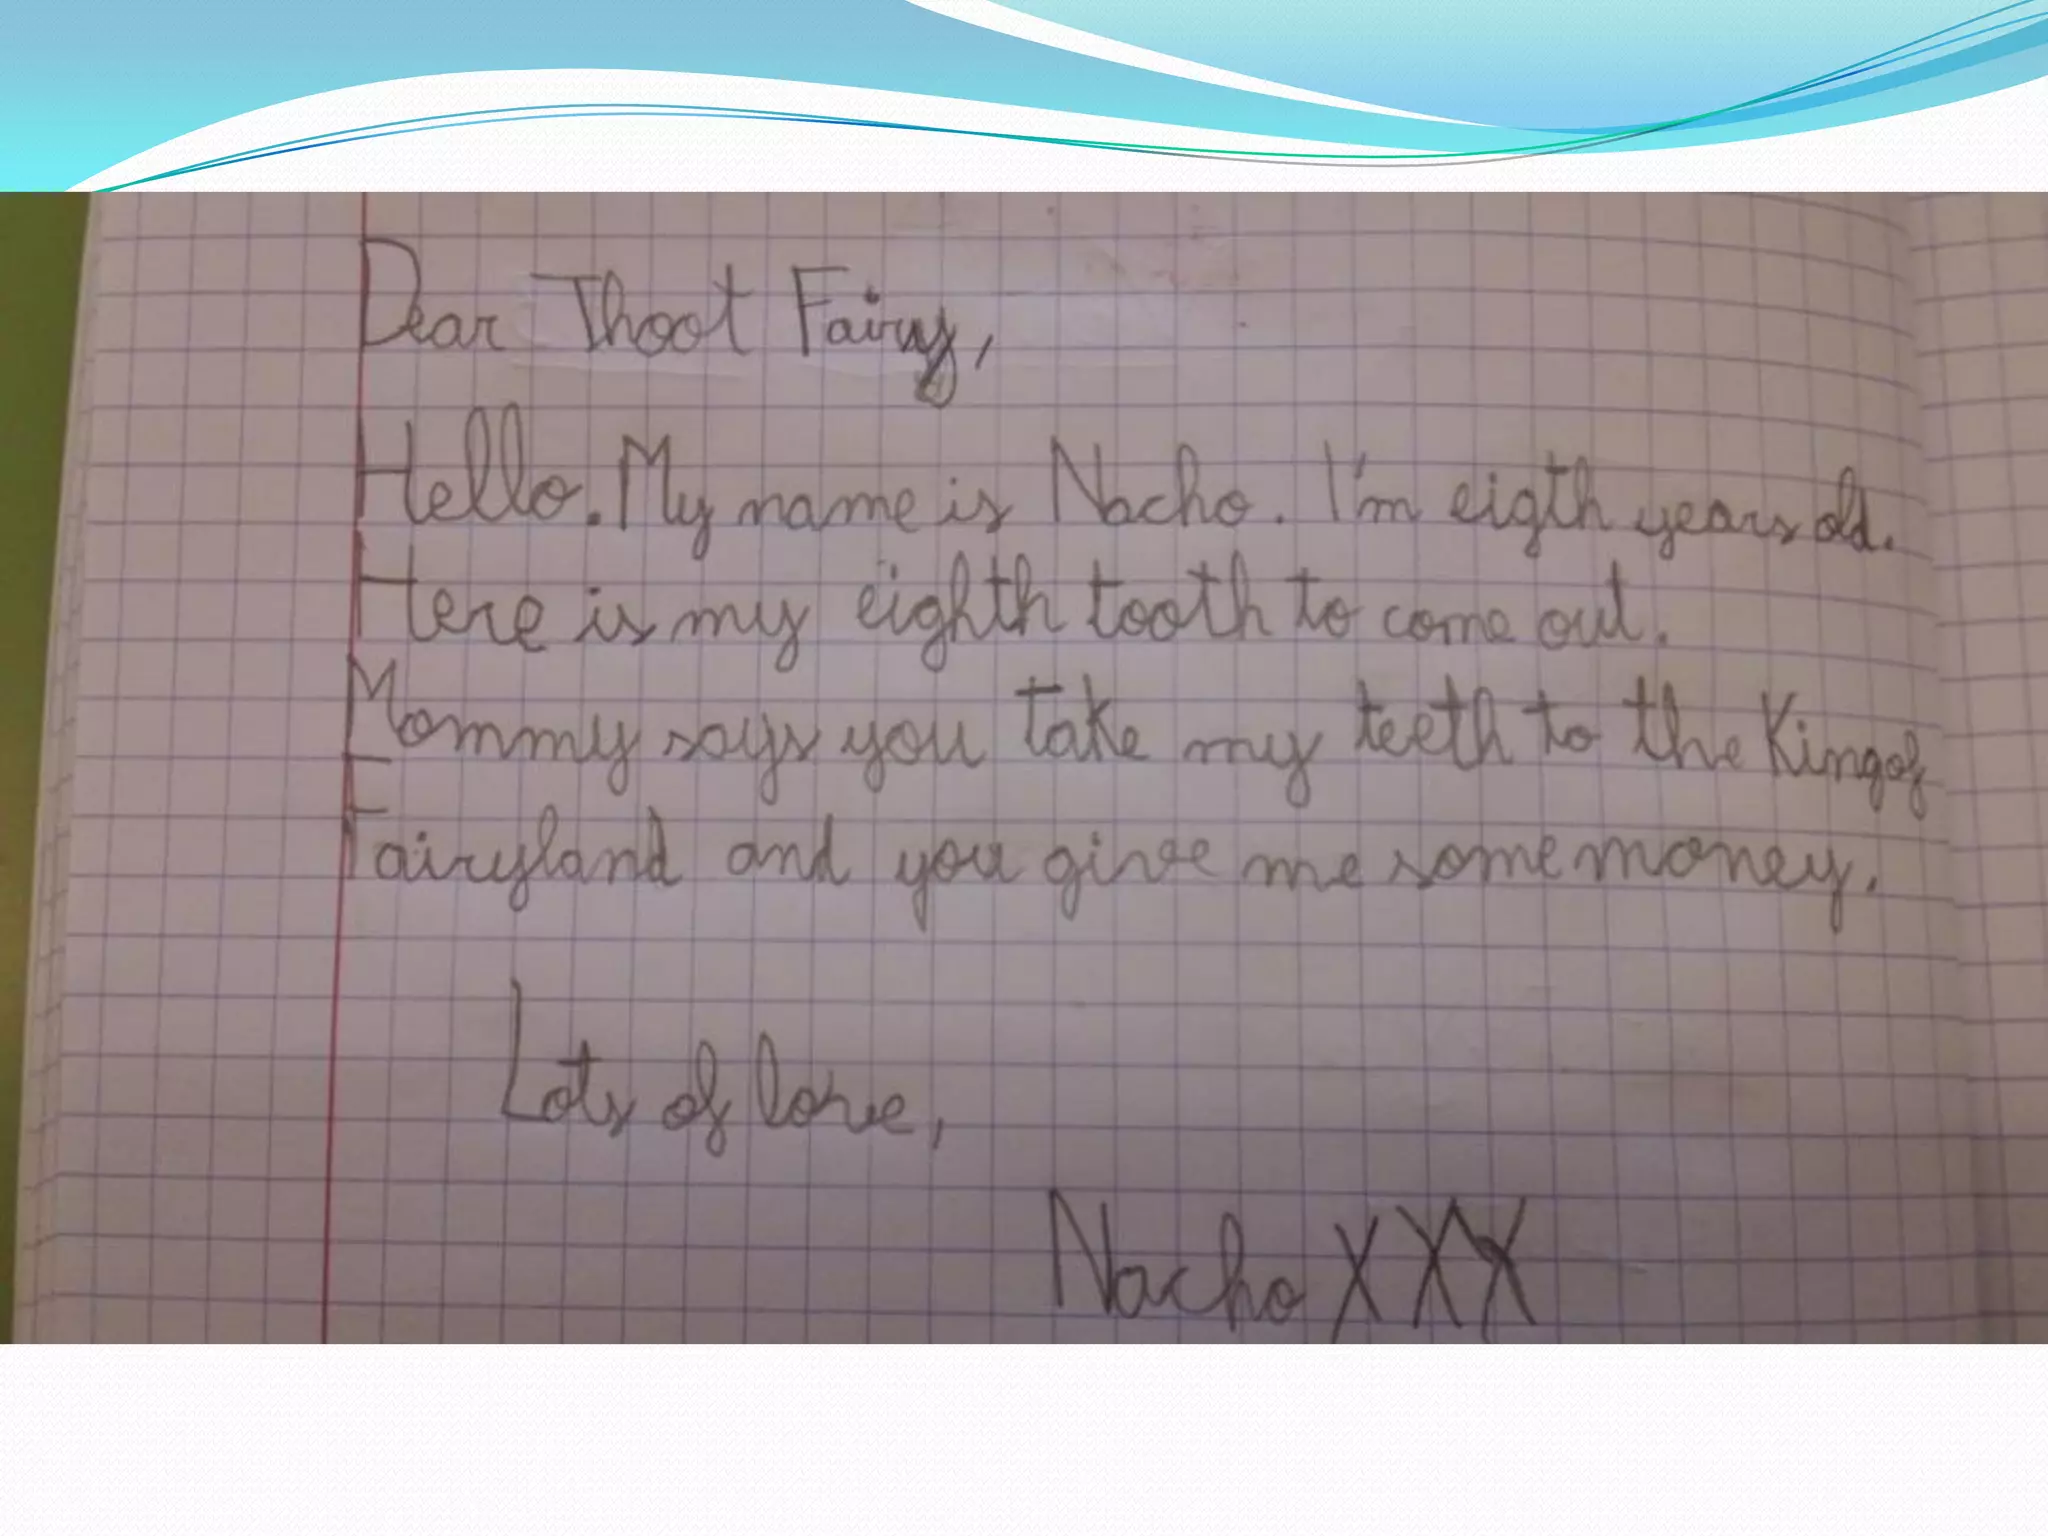 Dear Thoot Fairy,
Hello. My name is Nacho. I'm eigth years old.
Here is my eighth tooth to come out.
Mommy says you take my teeth to the King of
Fairyland and you give me some money.
Lots of love,
Nacho XXX